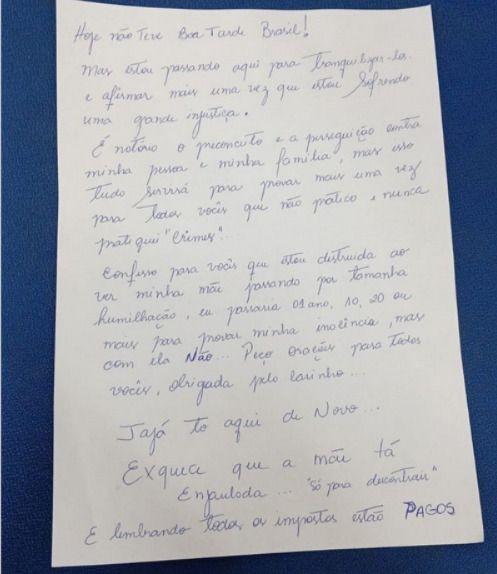 Hoje não Teve Boa Tarde Brasil!
Mas estou passando aqui para tranquilizar-los
e afirmar mais uma vez que estou Sofrendo
uma grande injustiça.
É notório o preconceito e a perseguição contra
minha pessoa e minha família, mas isso
tudo servirá para provar mais uma vez
para todos vocês que não pratico e nunca
pratiquei "Crimes"...
Confesso para vocês que estou distruida ao
ver minha mãe passando por tamanha
humilhação, eu passaria 01 ano, 10, 20 ou
mais para provar minha inocência, mas
com ela Não... Peço orações para todos
vocês, obrigada pelo carinho...
Jajá to aqui de Novo...
Exqueca que a mãe tá
Enjaulada... "só para descontrair"
E lembrando todos os impostos estão PAGOS